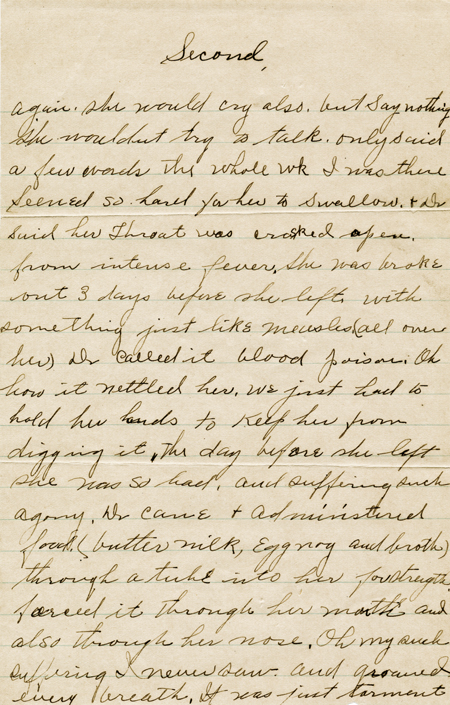 Second,
again. She would cry also. but say nothing
She wouldnt try to talk. only said
a few words the whole wk I was there
Seened so hard for her to swallow. + Dr
said her Throat was cracked open.
from intense fever. She was broke
out 3 days before she left with
something just like measles (all over
her) Dr called it blood poison. Oh
how it nettled her. we just had to
hold her hands to keep her from
digging it. The day before she left
she was so bad. and suffering such
agony. Dr came + administered
food. (butter milk, Eggnog and broth)
through a tube into her for strength
forced it through her mouth and
also through her nose. Oh my such
suffering I never saw. and groaned
every breath. It was just torment